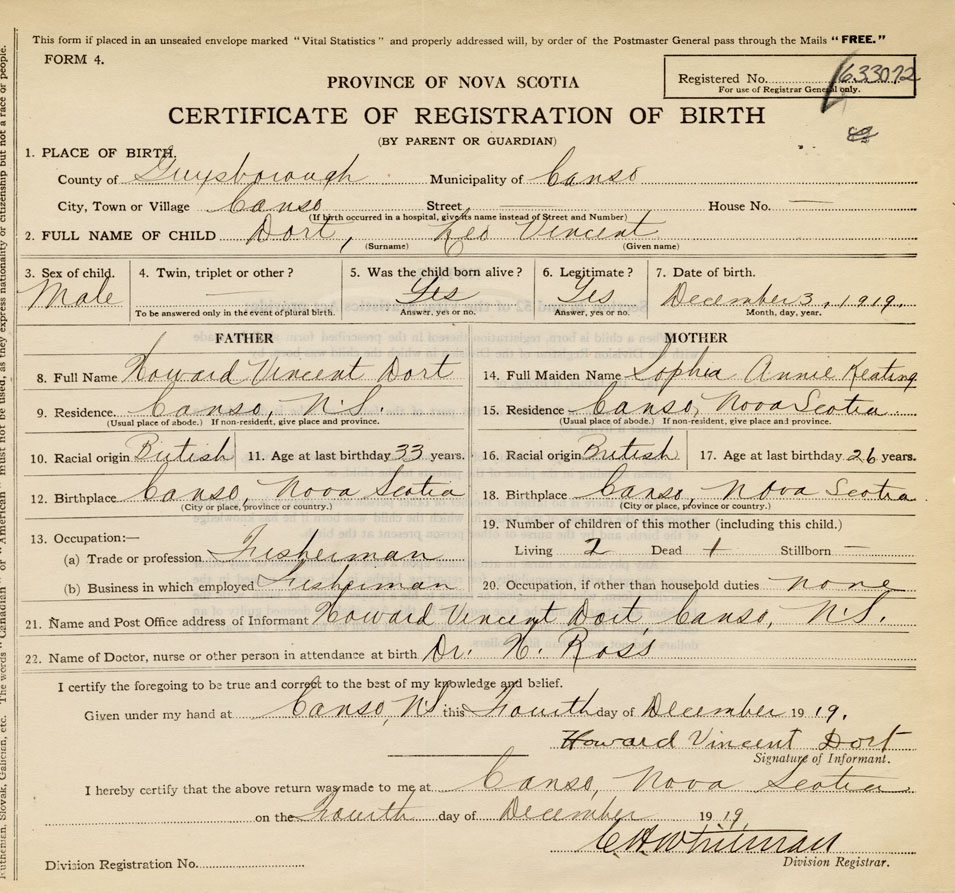 This form if placed in an unsealed envelope marked "Vital Statistics" and properly addressed will, by order of the Postmaster General pass through the Mails "FREE."
FORM 4.
Registered No. 633072
For use of Registrar General only.
PROVINCE OF NOVA SCOTIA
CERTIFICATE OF REGISTRATION OF BIRTH
(BY PARENT OR GUARDIAN)
1. PLACE OF BIRTH.
County of Guysborough Municipality of Canso
City, Town or Village Canso Street — House No. —
(If birth occurred in a hospital, give its name instead of Street and Number)
2. FULL NAME OF CHILD Dort, Leo Vincent
(Surname) (Given name)
3. Sex of child. 4. Twin, triplet or other? 5. Was the child born alive? 6. Legitimate? 7. Date of birth.
Male — Yes Yes December 3, 1919.
To be answered only in the event of plural birth. Answer, yes or no. Answer, yes or no. Month, day, year.
FATHER
8. Full Name Howard Vincent Dort
9. Residence. Canso, N.S.
(Usual place of abode.) If non-resident, give place and province.
10. Racial origin British 11. Age at last birthday 33 years.
12. Birthplace Canso, Nova Scotia
(City or place, province or country.)
13. Occupation:—
(a) Trade or profession Fisherman
(b) Business in which employed Fisherman
MOTHER
14. Full Maiden Name Sophia Annie Keating
15. Residence Canso, Nova Scotia
(Usual place of abode.) If non-resident, give place and province.
16. Racial origin British 17. Age at last birthday 26 years.
18. Birthplace Canso, Nova Scotia
(City or place, province or country.)
19. Number of children of this mother (including this child.)
Living 2 Dead 1 Stillborn —
20. Occupation, if other than household duties none
21. Name and Post Office address of Informant Howard Vincent Dort, Canso, N.S.
22. Name of Doctor, nurse or other person in attendance at birth Dr. H. Ross
I certify the foregoing to be true and correct to the best of my knowledge and belief.
Given under my hand at Canso, N.S. this Fourth day of December 1919.
Howard Vincent Dort
Signature of Informant.
I hereby certify that the above return was made to me at Canso, Nova Scotia
on the Fourth day of December 1919
C H Whitman
Division Registrar.
Division Registration No.
Ruthenian, Slovak, Galician, etc. The words "Canadian" or "American" must not be used, as they express nationality or citizenship but not a race or people.